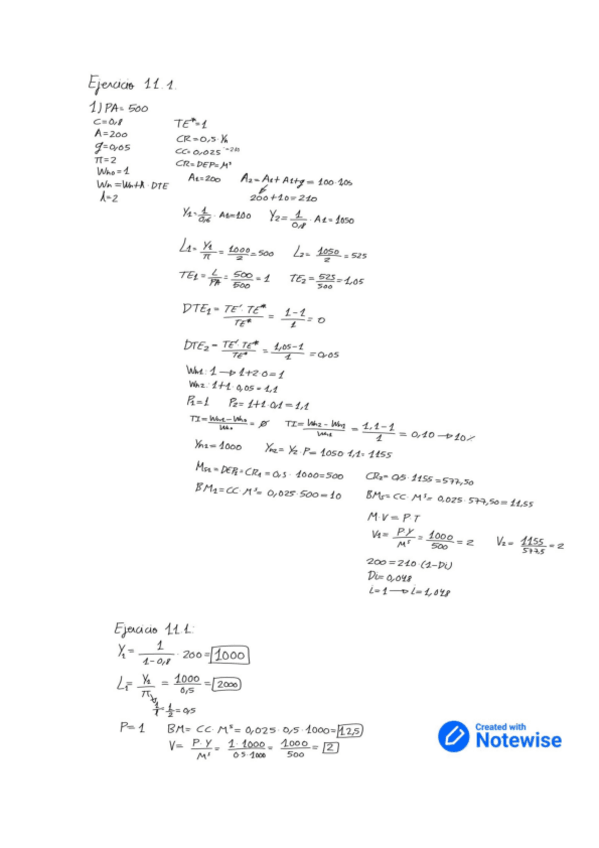 Ejercicio 11.1.
1) PA = 500
C = 0,8
A = 200
g = 0,05
π = 2
Wn0 = 1
Wn = Wn + λ · DTE
λ = 2
TE* = 1
CR = 0,5 · Yn
CC = 0,025
CR = DEP = M^s
A1 = 200 A2 = A1 + A1 + g = 100.105
200 + 10 = 210
Y1 = 1/0,2 · A1 = 100 Y2 = 1/0,8 · A1 = 1050
L1 = Y1/π = 1000/2 = 500 L2 = 1050/2 = 525
TE1 = L/PA = 500/500 = 1 TE2 = 525/500 = 1,05
DTE1 = TE' · TE*/TE* = 1-1/1 = 0
DTE2 = TE' TE*/TE* = 1,05-1/1 = 0,05
Wn1: 1 → 1 + 2 0 = 1
Wn2: 1 + 1 0,05 = 1,1
P1 = 1 P2 = 1 + 1 0,1 = 1,1
TI = Wn1 - Wn0/Wn0 = ∅ TI = Wn2 - Wn2/Wn1 = 1,1-1/1 = 0,10 → 10%
Yn1 = 1000 Yn2 = Y2 · P = 1050 · 1,1 = 1155
Ms1 = DEP1 = CR1 = 0,5 · 1000 = 500 CR2 = 0,5 · 1155 = 577,50
BM1 = CC · M^s = 0,025 · 500 = 10 BM2 = CC · M^s = 0,025 · 577,50 = 11,55
M · V = P T
V1 = P·Y/M^s = 1000/500 = 2 V2 = 1155/577,5 = 2
200 = 210 · (1 - Di)
Di = 0,048
i = 1 → i = 1,048
Ejercicio 11.1:
Y1 = 1/1-0,8 · 200 = 1000
L1 = Y1/π = 1000/0,5 = 2000
1/2 = 0,5
P = 1 BM = CC · M^s = 0,025 · 0,5 · 1000 = 12,5
V = P·Y/M^s = 1·1000/0,5·1000 = 1000/500 = 2
Created with
Notewise